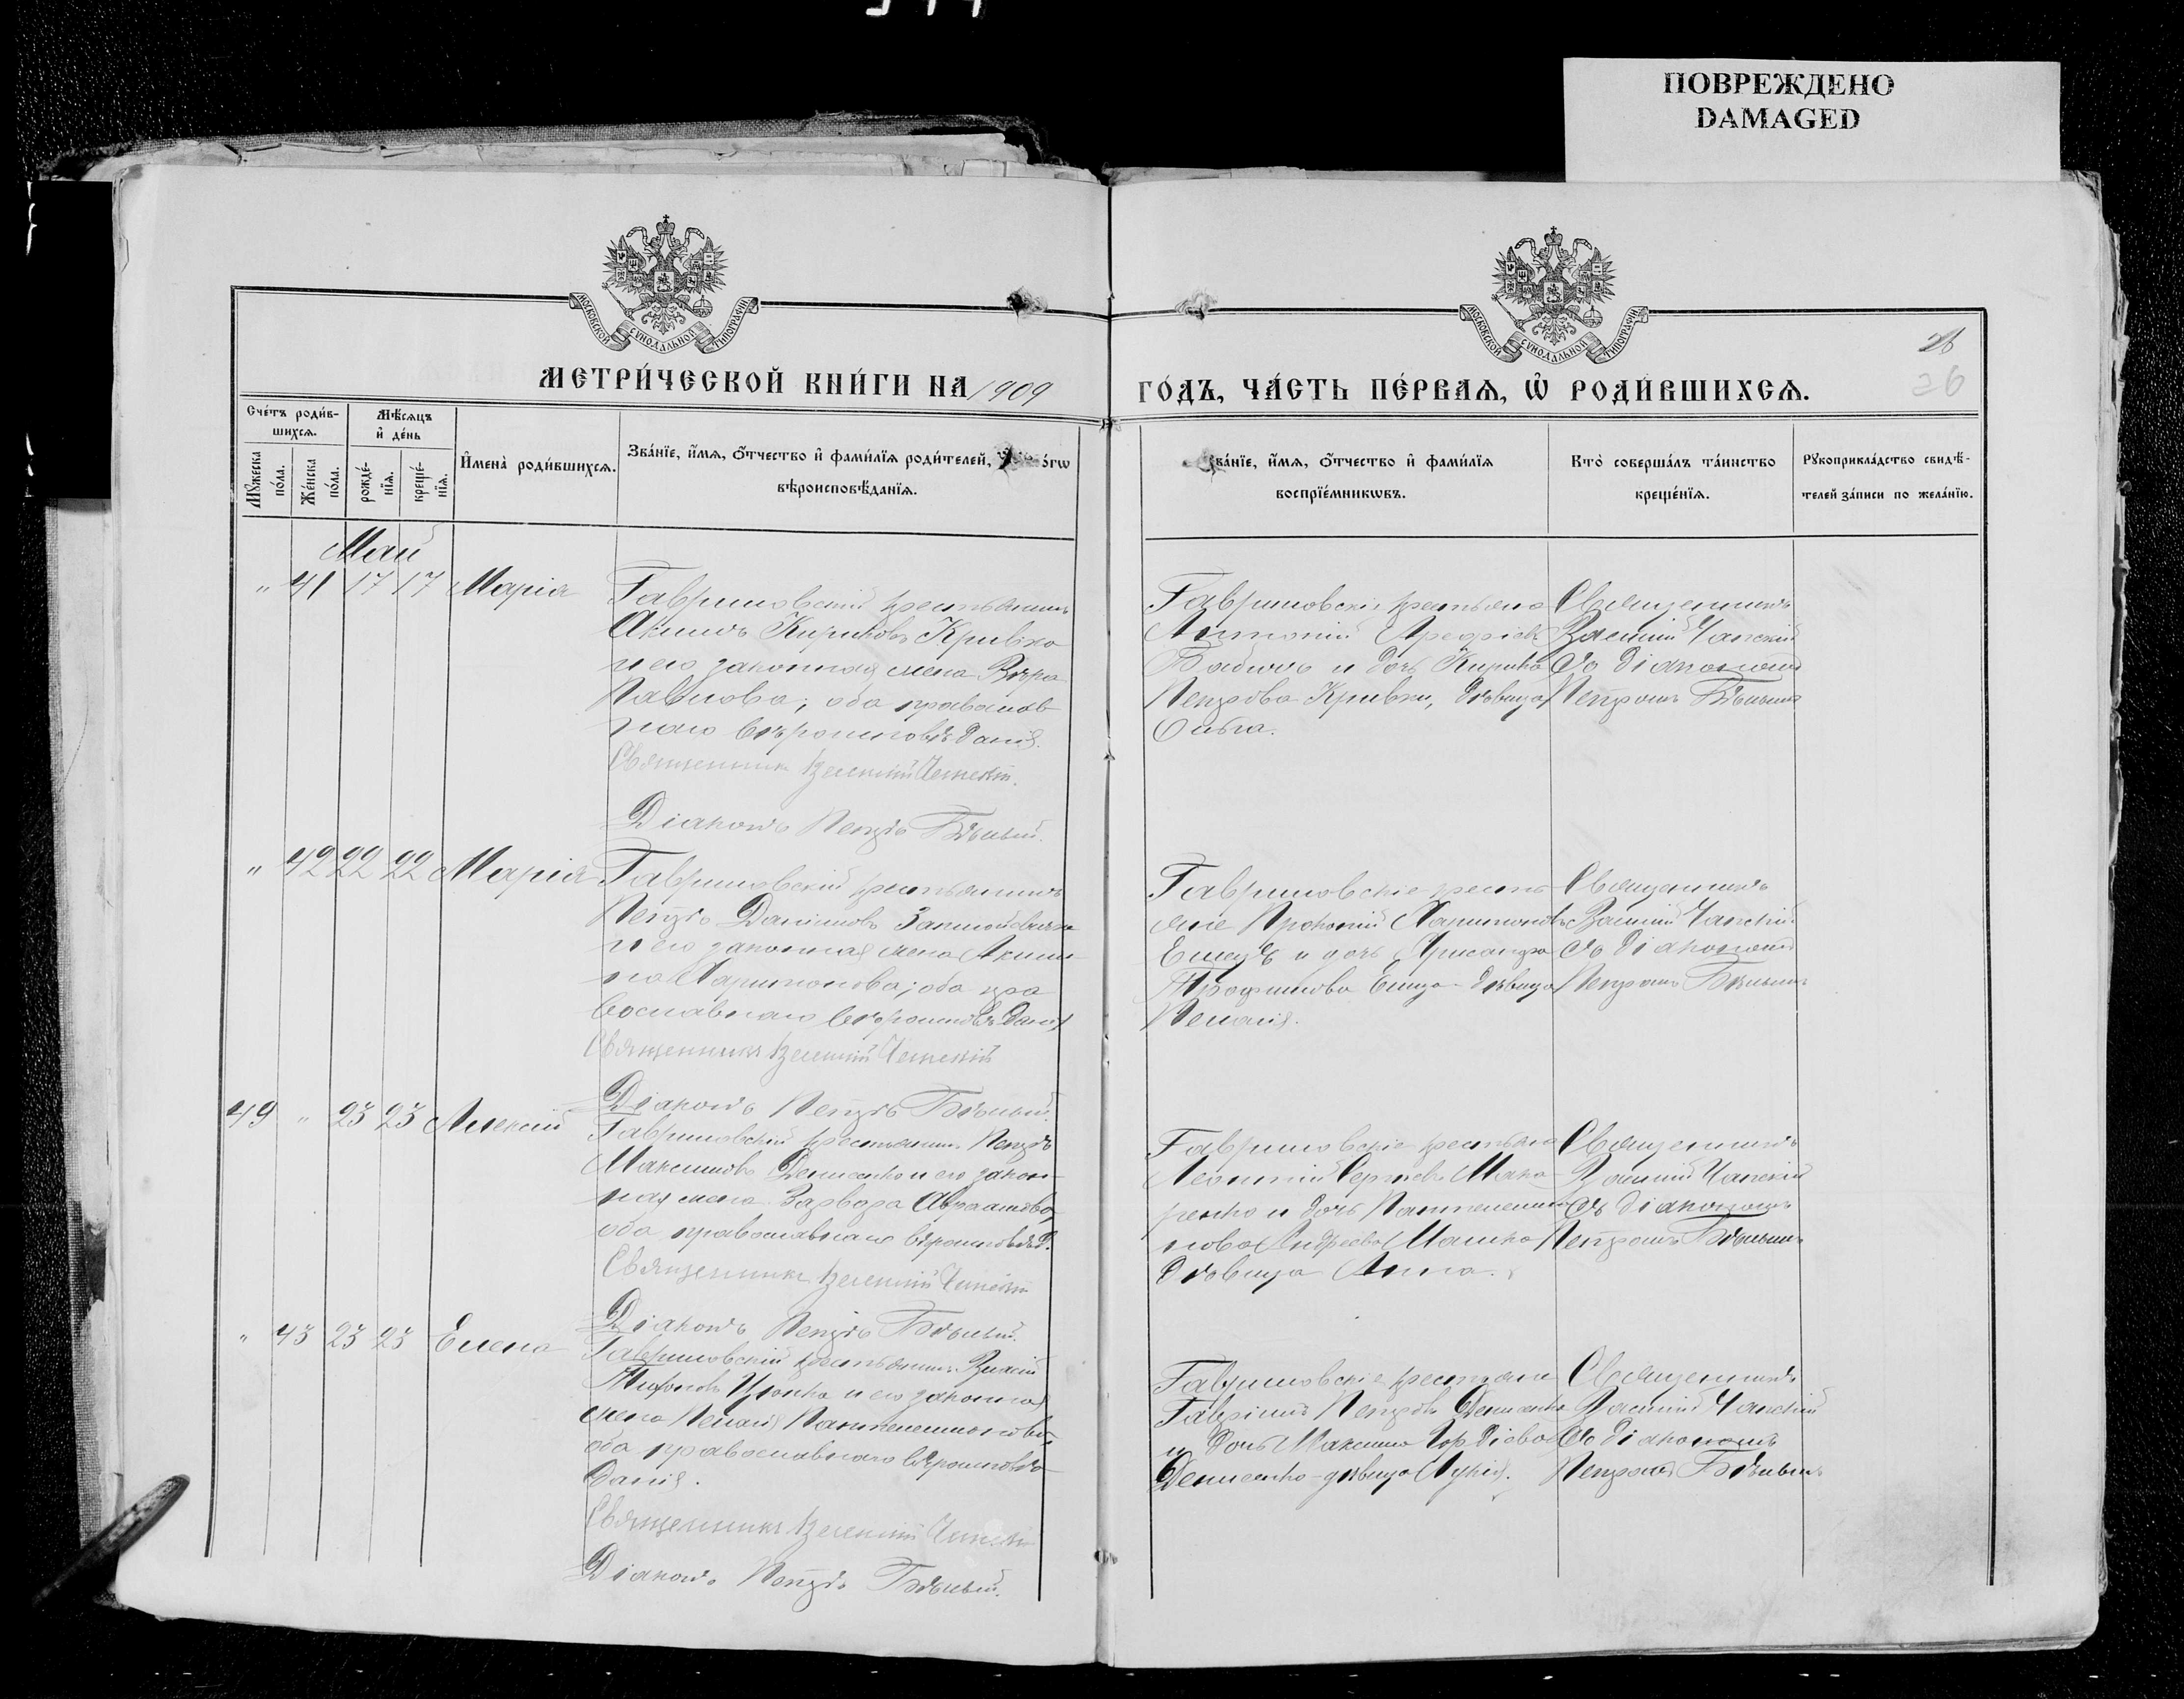 ПОВРЕЖДЕНО
DAMAGED
МОСКОВСКОЙ СѴНОДАЛЬНОЙ ТИПОГРАФІИ
МОСКОВСКОЙ СѴНОДАЛЬНОЙ ТИПОГРАФІИ
26
МЕТРИ́ЧЕСКОЙ КНИ́ГИ НА 1909
ГО́ДЪ, ЧА́СТЬ ПЕ́РВАѦ, Ѡ҆ РОДИ́ВШИХСѦ.
26
Сче́тъ роди́в-
шихсѧ.
Мѣ́сѧцъ
и҆ де́нь
Мꙋ́жеска
по́ла.
Же́нска
по́ла.
рожде́-
нїѧ.
креще́-
нїѧ.
И҆мена̀ роди́вшихсѧ.
Зва́нїе, и҆́мѧ, ѻ҆́тчество и҆ фами́лїѧ роди́телей,
вѣроисповѣ́данїѧ.
Зва́нїе, и҆́мѧ, ѻ҆́тчество и҆ фами́лїѧ
воспрїе́мникѡвъ.
Кто̀ соверша́лъ та́инство
креще́нїѧ.
Рꙋкоприкла́дство свидѣ́-
телей за́писи по жела́нїю.
Май
" 41 17 17 Марія
Гавриловскій крестьянинъ
Акимъ Кириковъ Кривко
и его законная жена Вѣра
Павлова; оба православ
наго вѣроисповѣданія.
Священникъ Василій
Діаконъ Петръ Бѣлый.
Гавриловскіе крестьяне
Антоній
Бабичъ и дочь Кирика
Петрова Кривки, дѣвица
Ольга.
Священникъ
Василій
съ діакономъ
Петромъ Бѣлымъ
" 42 22 22 Марія
Гавриловскій крестьянинъ
Петръ Даниловъ
и его законная жена Акили
на Харитонова; оба пра
вославнаго вѣроисповѣданія
Священникъ Василій
Діаконъ Петръ Бѣлый.
Гавриловскіе кресть
яне Прокопій Харитоновъ
и дочь
Трофимова дѣвица
Пелагія.
Священникъ
Василій
съ діакономъ
Петромъ Бѣлымъ
49 " 23 23 Алексій
Гавриловскій крестьянинъ Петръ
Максимовъ Денисенко и его закон-
ная жена Варвара Авраамова,
оба православнаго вѣроисповѣд.
Священникъ Василій
Діаконъ Петръ Бѣлый.
Гавриловскіе крестьяне
Леонтій Сергѣевъ Мака-
ренко и дочь Пантелеимо
нова Андреева
дѣвица Анна.
Священникъ
Василій
съ діакономъ
Петромъ Бѣлымъ
" 43 23 23 Елена
Гавриловскій крестьянинъ
и его законная
жена Пелагія Пантелеимонова,
оба православнаго вѣроисповѣ-
данія.
Священникъ Василій
Діаконъ Петръ Бѣлый.
Гавриловскіе крестьяне
Гавріилъ Петровъ Денисенко
и дочь Максима Гордіева
Денисенко - дѣвица Лукія.
Священникъ
Василій
съ діакономъ
Петромъ Бѣлымъ